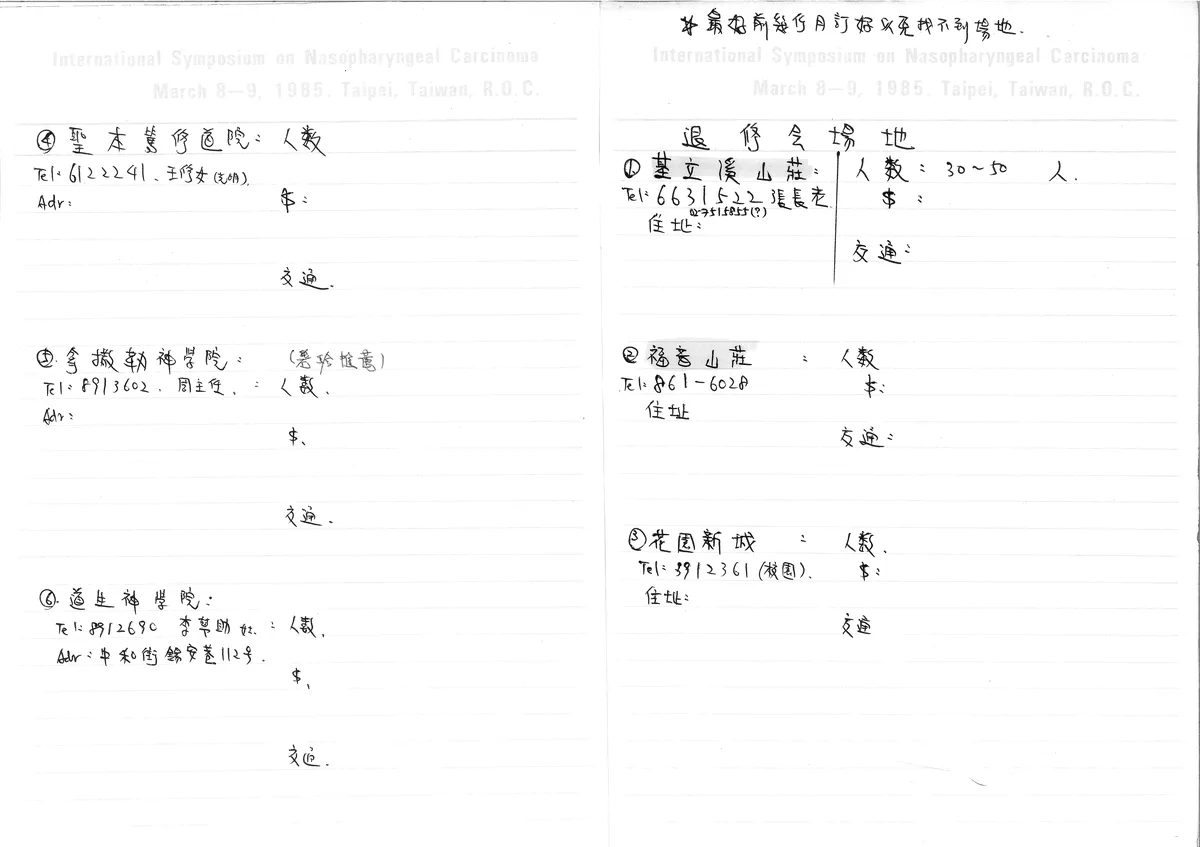 * 最好前幾個月訂好以免找不到場地.
International Symposium on Nasopharyngeal Carcinoma
March 8—9, 1985. Taipei, Taiwan, R.O.C.
退修会場地
① 基立溪山莊: 人数: 30~50 人.
Tel: 6631522 張長老 $:
02-7515855(?)
住址:
交通:
② 福音山莊 : 人数
Tel: 861-6028 $:
住址
交通:
③ 花園新城 : 人数.
Tel: 3912361 (校園). $:
住址:
交通
International Symposium on Nasopharyngeal Carcinoma
March 8—9, 1985. Taipei, Taiwan, R.O.C.
④ 聖本篤修道院: 人数
Tel: 6122241. 王修女
Adr: $:
交通.
⑤. 拿撒勒神學院:
Tel: 8913602. 周主任. : 人数.
Adr:
$.
交通.
⑥. 道生神學院:
Tel: 8912690 李幫助 : 人数.
Adr: 中和街錫安巷112号.
$.
交通.